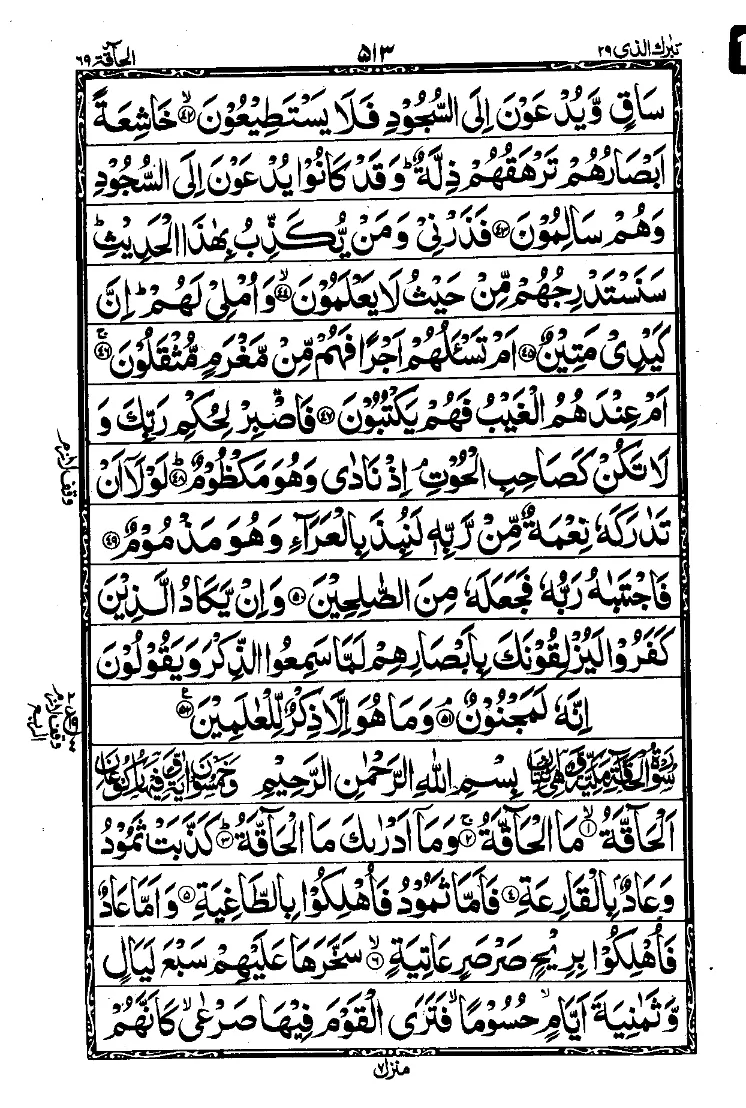 تبٰرك الذی ۲۹ ۵۱۳ الحآقة ۶۹
سَاقٍ وَّیُدْعَوْنَ اِلَی السُّجُوْدِ فَلَا یَسْتَطِیْعُوْنَ ۙ‏﴿۴۲﴾ خَاشِعَةً
اَبْصَارُهُمْ تَرْهَقُهُمْ ذِلَّةٌ ؕ وَقَدْ كَانُوْا یُدْعَوْنَ اِلَی السُّجُوْدِ
وَهُمْ سَالِمُوْنَ ﴿۴۳﴾ فَذَرْنِیْ وَمَنْ یُّكَذِّبُ بِهٰذَا الْحَدِیْثِ ؕ
سَنَسْتَدْرِجُهُمْ مِّنْ حَیْثُ لَا یَعْلَمُوْنَ ۙ﴿۴۴﴾ وَاُمْلِیْ لَهُمْ ؕ اِنَّ
كَیْدِیْ مَتِیْنٌ ﴿۴۵﴾ اَمْ تَسْـَٔلُهُمْ اَجْرًا فَهُمْ مِّنْ مَّغْرَمٍ مُّثْقَلُوْنَ ۚ﴿۴۶﴾
اَمْ عِنْدَهُمُ الْغَیْبُ فَهُمْ یَكْتُبُوْنَ ﴿۴۷﴾ فَاصْبِرْ لِحُكْمِ رَبِّكَ وَ
لَا تَكُنْ كَصَاحِبِ الْحُوْتِ ۘ اِذْ نَادٰی وَهُوَ مَكْظُوْمٌ ؕ﴿۴۸﴾ لَوْلَاۤ اَنْ
وقف لازم
تَدٰرَكَهٗ نِعْمَةٌ مِّنْ رَّبِّهٖ لَنُبِذَ بِالْعَرَآءِ وَهُوَ مَذْمُوْمٌ ﴿۴۹﴾
فَاجْتَبٰىهُ رَبُّهٗ فَجَعَلَهٗ مِنَ الصّٰلِحِیْنَ ﴿۵۰﴾ وَاِنْ یَّكَادُ الَّذِیْنَ
كَفَرُوْا لَیُزْلِقُوْنَكَ بِاَبْصَارِهِمْ لَمَّا سَمِعُوا الذِّكْرَ وَیَقُوْلُوْنَ
اِنَّهٗ لَمَجْنُوْنٌ ۘ﴿۵۱﴾ وَمَا هُوَ اِلَّا ذِكْرٌ لِّلْعٰلَمِیْنَ ﴿۵۲﴾
وقف لازم
الربع
سُوْرَةُ الْحَآقَّةِ مَكِّیَّةٌ بِسْمِ اللّٰهِ الرَّحْمٰنِ الرَّحِیْمِ
اَلْحَآقَّةُ ۙ﴿۱﴾ مَا الْحَآقَّةُ ۚ﴿۲﴾ وَمَاۤ اَدْرٰىكَ مَا الْحَآقَّةُ ؕ﴿۳﴾ كَذَّبَتْ ثَمُوْدُ
وَعَادٌۢ بِالْقَارِعَةِ ﴿۴﴾ فَاَمَّا ثَمُوْدُ فَاُهْلِكُوْا بِالطَّاغِیَةِ ﴿۵﴾ وَاَمَّا عَادٌ
فَاُهْلِكُوْا بِرِیْحٍ صَرْصَرٍ عَاتِیَةٍ ۙ﴿۶﴾ سَخَّرَهَا عَلَیْهِمْ سَبْعَ لَیَالٍ
وَّثَمٰنِیَةَ اَیَّامٍ ۙ حُسُوْمًا ۙ فَتَرَی الْقَوْمَ فِیْهَا صَرْعٰی ۙ كَاَنَّهُمْ
منزل ۷